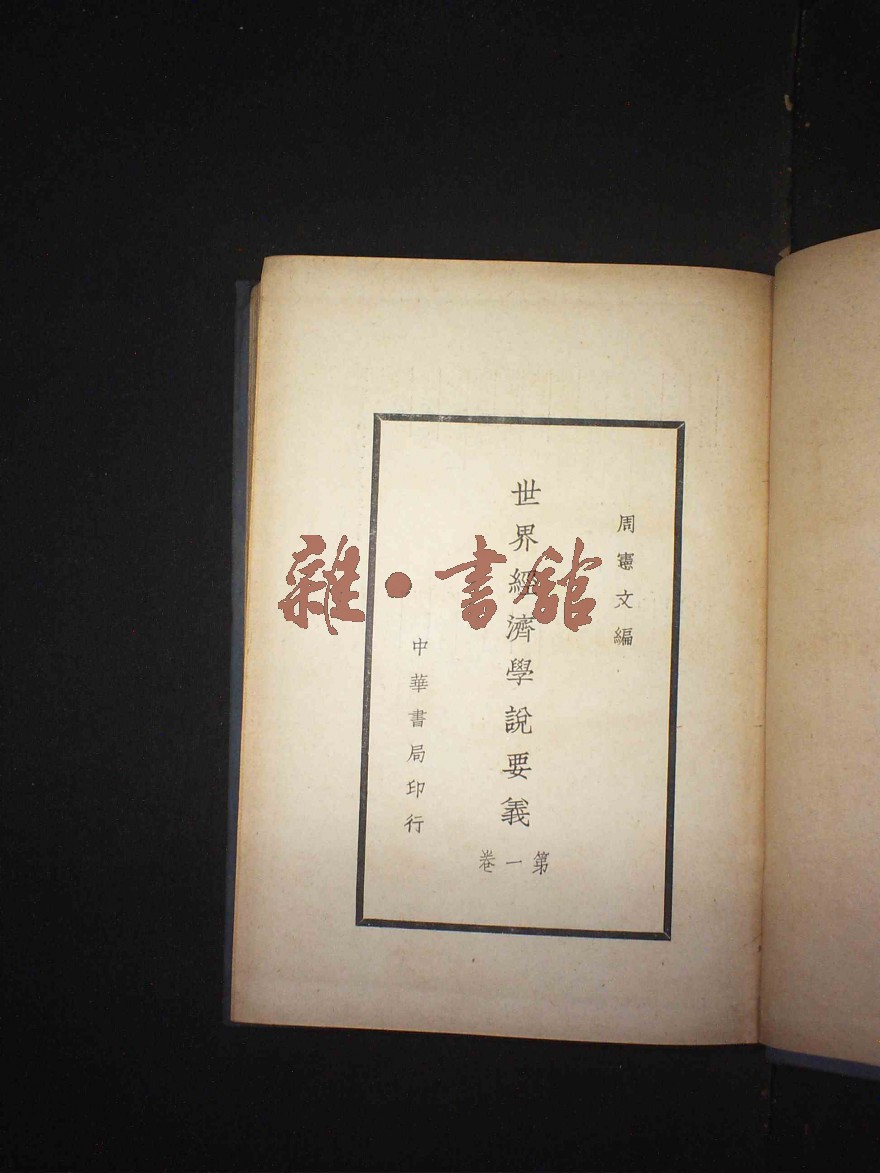 周憲文編
世界經濟學說要義
第一卷
中華書局印行
雜·書館